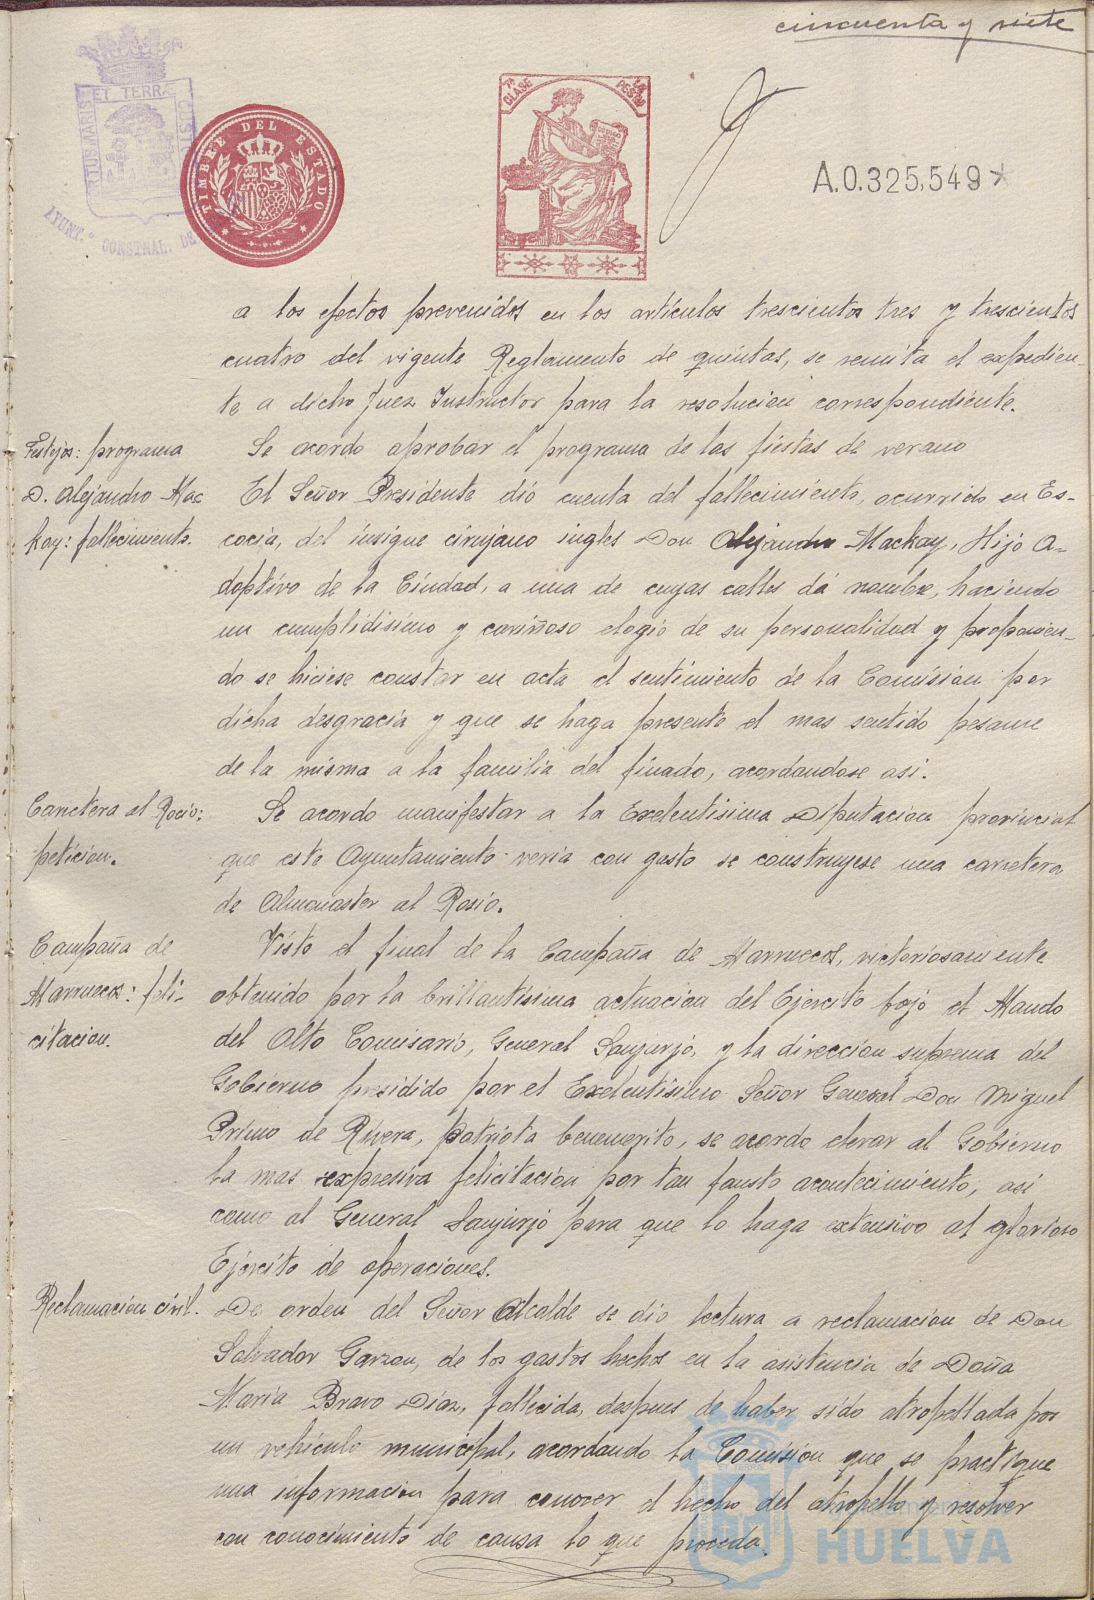 cincuenta y siete
ET TERRÆ
AYUNT.º CONSTNAL. DE
TIMBRE DEL ESTADO
7ª CLASE
PESETA
A.0.325,549*
a los efectos prevenidos en los artículos trescientos tres y trescientos
cuatro del vigente Reglamento de quintas, se remita el expedien-
te a dicho Juez Instructor para la resolucion correspondiente.
Festejos: programa
Se acordo aprobar el programa de las fiestas de verano
D. Alejandro Mac
kay: fallecimiento.
El Señor Presidente dió cuenta del fallecimiento, ocurrido en Es-
cocia, del insigne cirujano ingles Don Alejandro Mackay, Hijo A-
doptivo de la Ciudad, a una de cuyas calles dá nombre, haciendo
un cumplidisimo y cariñoso elogio de su personalidad y proponien-
do se hiciese constar en acta el sentimiento de la Comisión por
dicha desgracia y que se haga presente el mas sentido pesame
de la misma a la familia del finado, acordandose asi.
Carretera al Rocio:
peticion.
Se acordo manifestar a la Exelentisima Diputacion provincial
que este Ayuntamiento veria con gusto se construyese una carretera
de Almonaster al Rosio.
Campaña de
Marruecos: feli-
citacion.
Visto el final de la Campaña de Marruecos, victoriosamente
obtenido por la brillantisima actuacion del Ejercito bajo el Mando
del Alto Comisario, General Sanjurjo, y la direccion suprema del
Gobierno presidido por el Exelentisimo Señor General Don Miguel
Primo de Rivera, patriota benemerito, se acordo elevar al Gobierno
la mas expresiva felicitación por tan fausto acontecimiento, asi
como al General Sanjurjo para que lo haga extensivo al glorioso
Ejercito de operaciones.
Reclamacion civil.
De orden del Señor Alcalde se dio lectura a reclamacion de Don
Salvador Garzon, de los gastos hechos en la asistencia de Doña
Maria Bravo Diaz, fallecida, despues de haber sido atropellada por
un vehículo municipal, acordando la Comisión que se practique
una informacion para conocer el hecho del atropello y resolver
con conocimiento de causa lo que proceda.
HUELVA